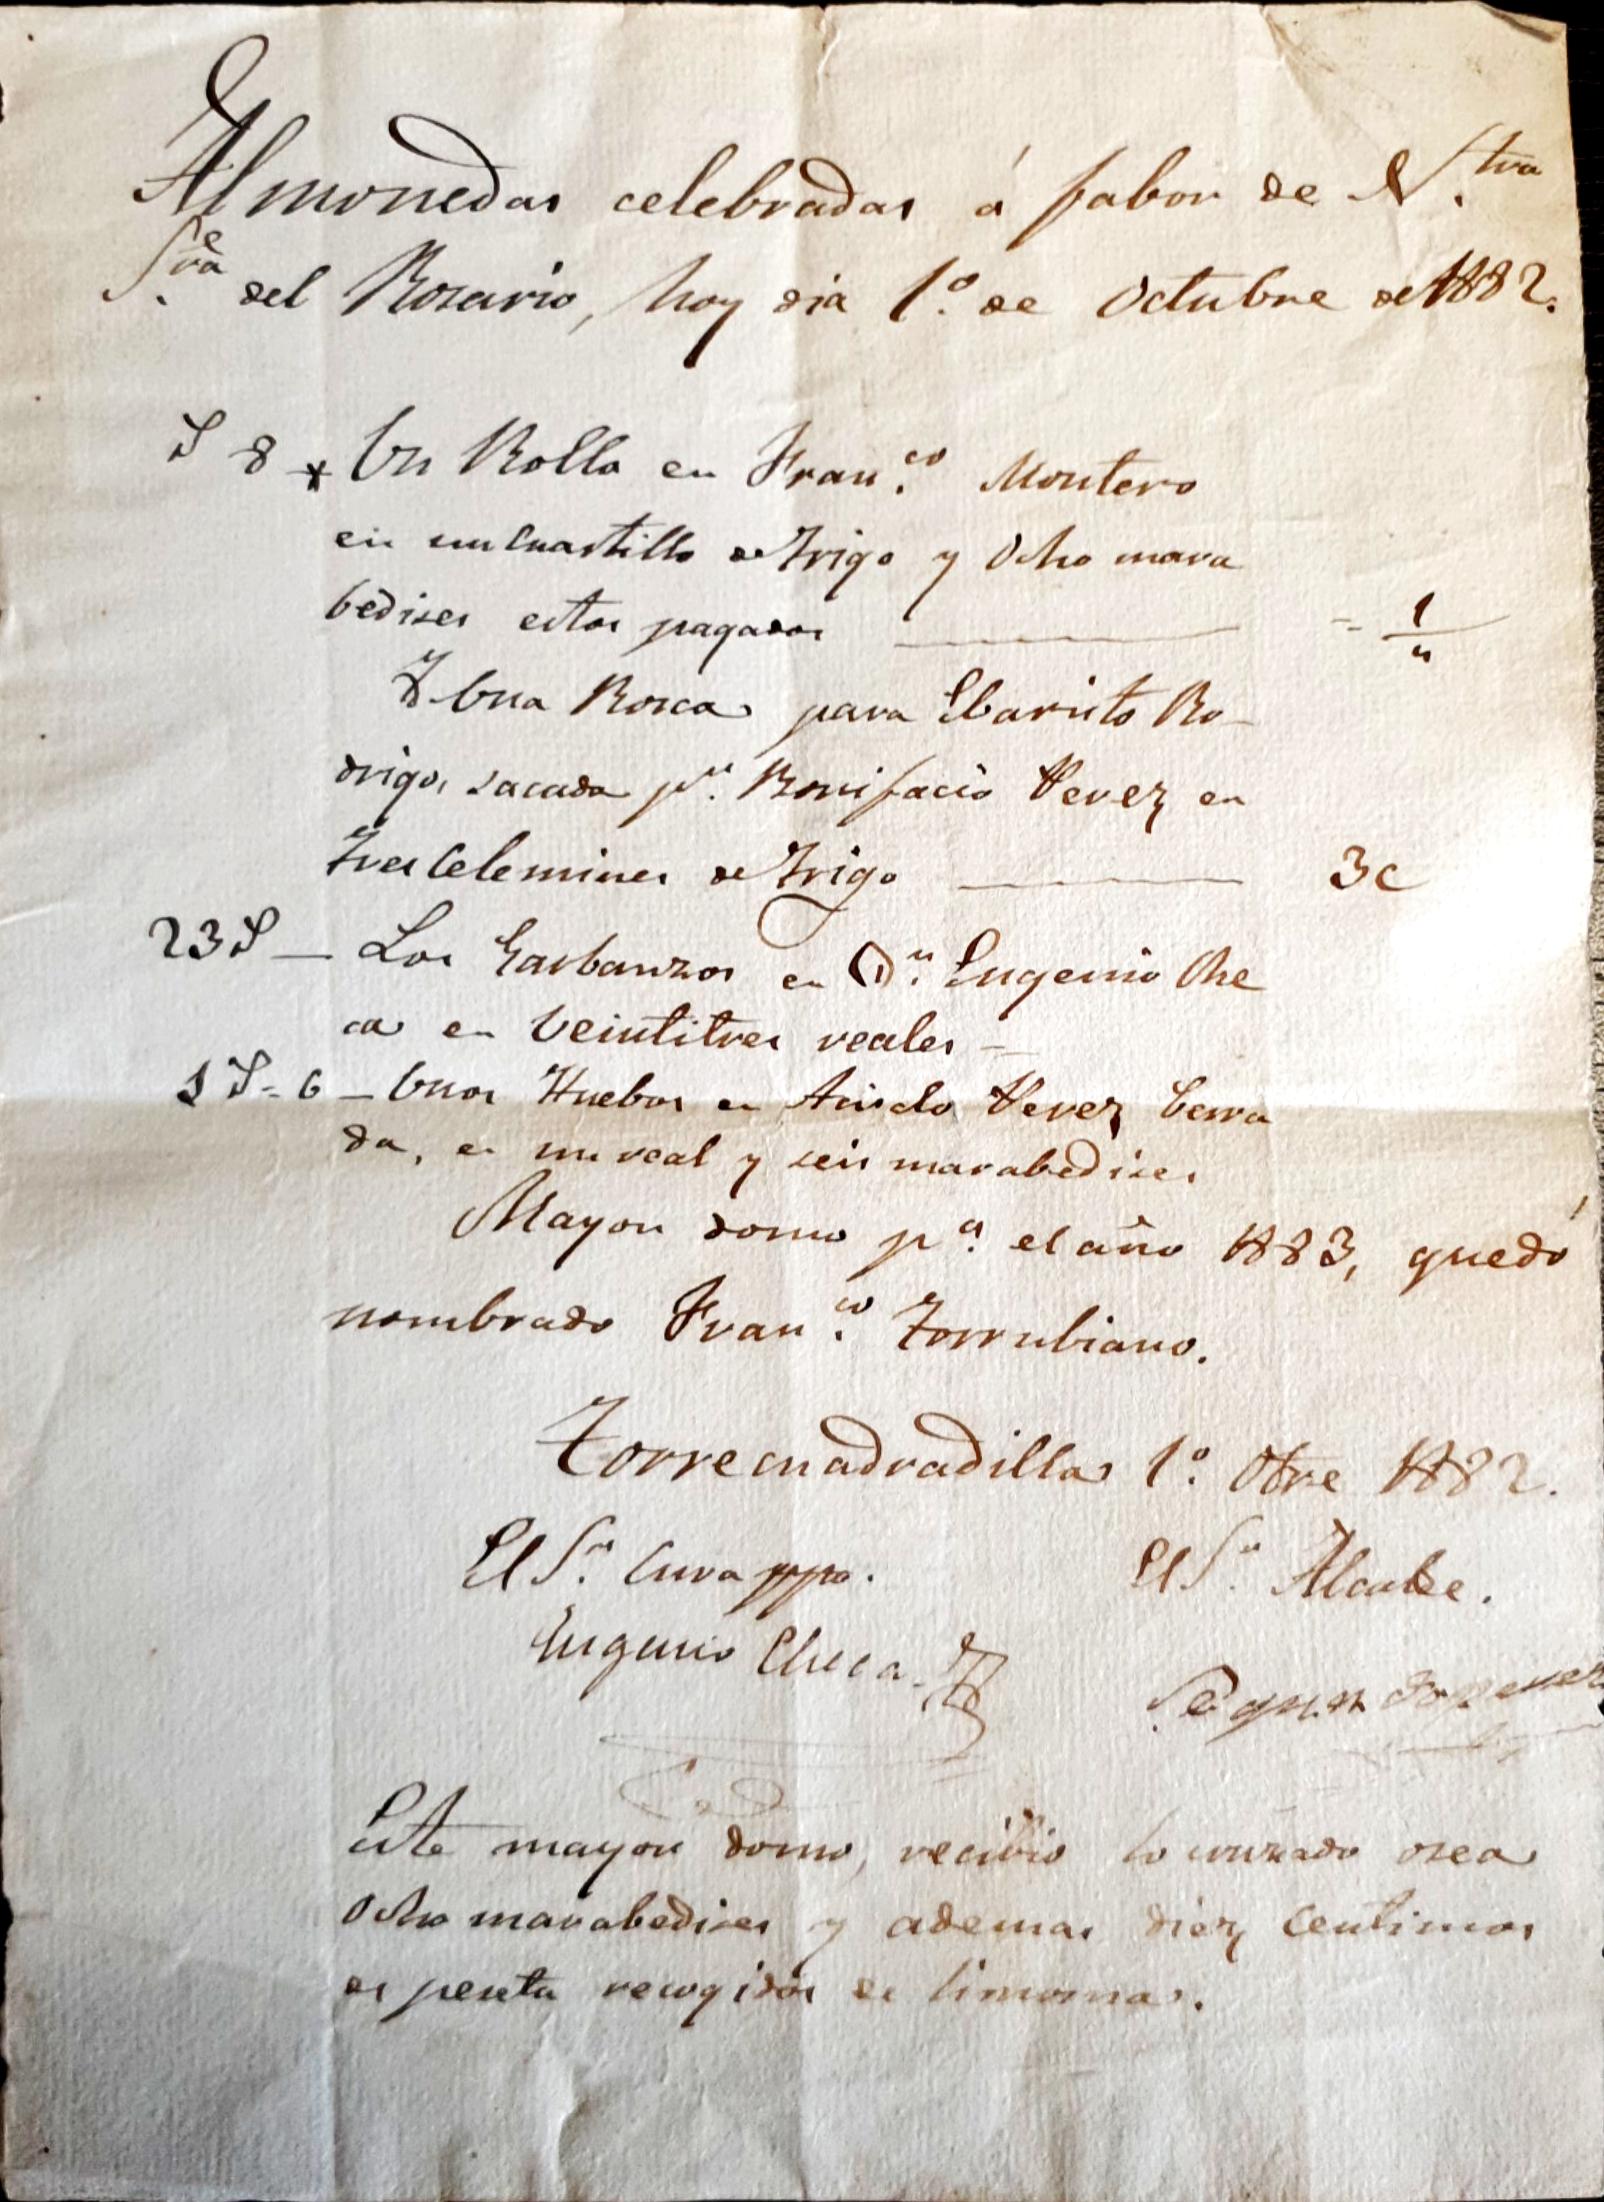 Almonedas celebradas á fabor de N.tra
S.ra del Rosario, hoy dia 1.º de Octubre de 1882.
8 Un Rollo en Fran.co Montero
en un cuartillo de Trigo y Ocho mara
bedises estos pagados = 1/4
Y una Rosca para Ebaristo Ro-
drigo, sacada p.r Bonifacio Perez en
Tres Celemines de Trigo 3c
23 — Los Garbanzos en D.n Eugenio Che
ca en Veintitres reales —
1 = 6 — Unos Huebos en Acisclo Perez Cerra
da, en un real y seis marabedises
Mayor domo p.a el año 1883, quedó
nombrado Fran.co Torrubiano.
Torrecuadradilla 1.º Otre 1882.
El S.r Cura ppo. El S.r Alcalde.
Eugenio Checa Segundo perez
Este mayor domo, recibio lo cruzado osea
Ocho marabedises y ademas diez Centimos
de peseta recogidos de limosnas.